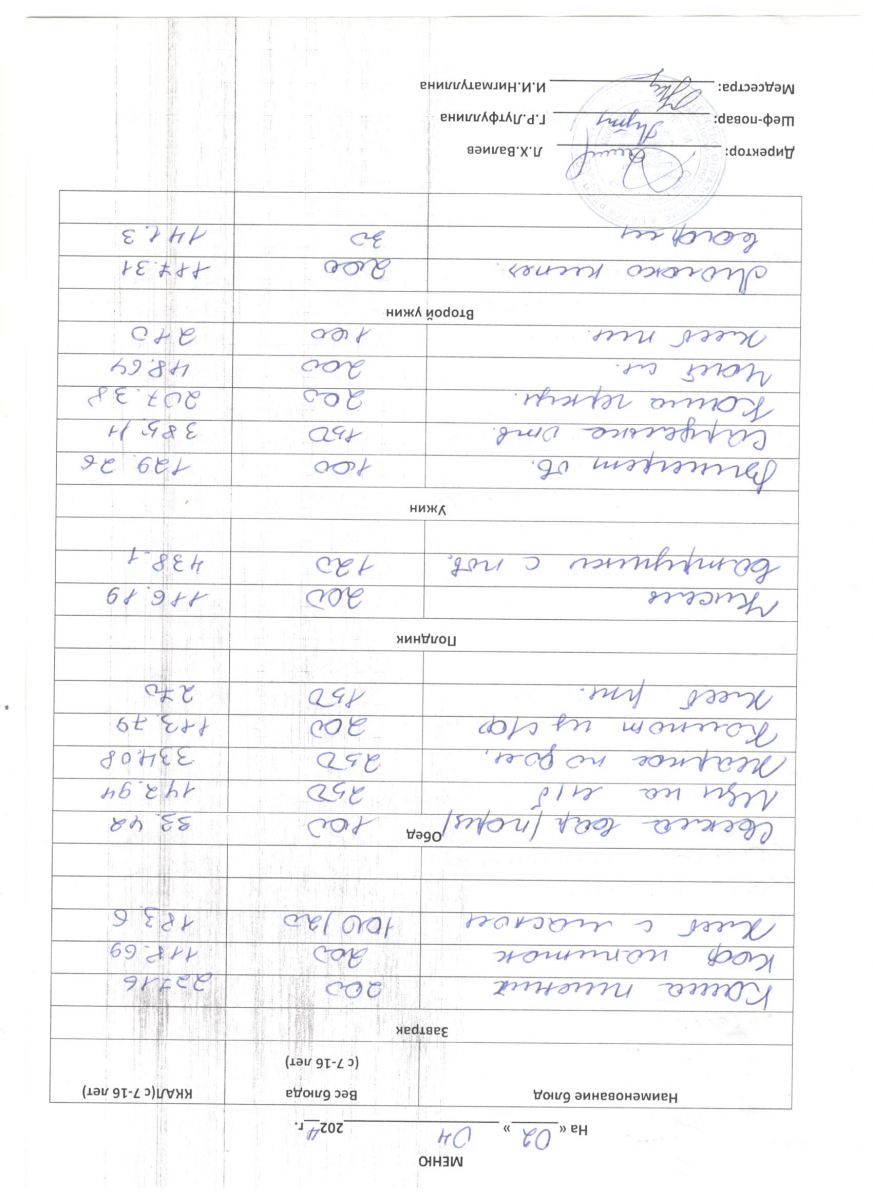 МЕНЮ
На « 02 » 04 2024 г.
Наименование блюд Вес блюда (с 7-16 лет) ККАЛ(с 7-16 лет)
Завтрак
Каша пшенич 200 227.16
Коф напиток 200 118.69
Хлеб с маслом 100/20 183.6
Обед
Свекла вар/порц/ 100 33.42
Щи на м/б 250 142.94
Жаркое по дом. 250 334.08
Компот из с/ф 200 113.79
Хлеб рж. 150 270
Полдник
Кисель 200 116.19
Ватрушки с пов. 120 438.1
Ужин
Винегрет ов. 100 129.26
Сарделька отв. 150 385.11
Каша геркул. 200 207.38
Чай сл. 200 48.64
Хлеб пш. 100 210
Второй ужин
Молоко кипяч. 200 117.31
вафли 30 141.3
Директор: Л.Х.Валиев
Шеф-повар: Г.Р.Лутфуллина
Медсестра: И.И.Нигматуллина